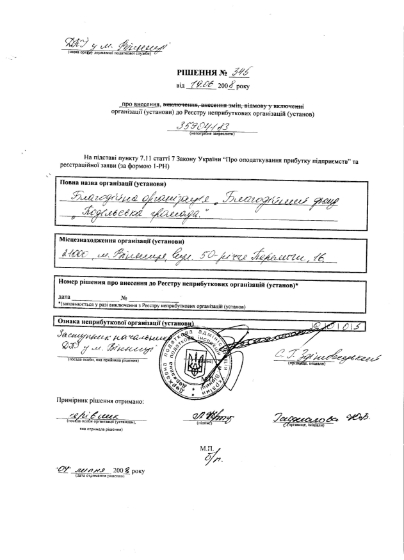 ДПІ у м. Вінниці
(назва органу державної податкової служби)
РІШЕННЯ № 346
від 2008 року
про внесення, виключення, внесення змін, відмову у включенні
організації (установи) до Реєстру неприбуткових організацій (установ)
На підставі пункту 7.11 статті 7 Закону України "Про оподаткування прибутку підприємств" та
реєстраційної заяви (за формою 1-РН)
Повна назва організації (установи)
Благодійна організація „Благодійний фонд
„Подільська громада."
Місцезнаходження організації (установи)
21000, м. Вінниця, вул. 50-річчя Перемоги, 16
Номер рішення про внесення до Реєстру неприбуткових організацій (установ)*
дата №
*(заповнюється у разі виключення з Реєстру неприбуткових організацій (установ)
Ознака неприбуткової організації (установи)
Заступник начальника
ДПІ у м. Вінниці
С. Г.
Примірник рішення отримано:
керівник
(підпис)
М.П.
б/п.
04 липня 2008 року
(дата отримання рішення)